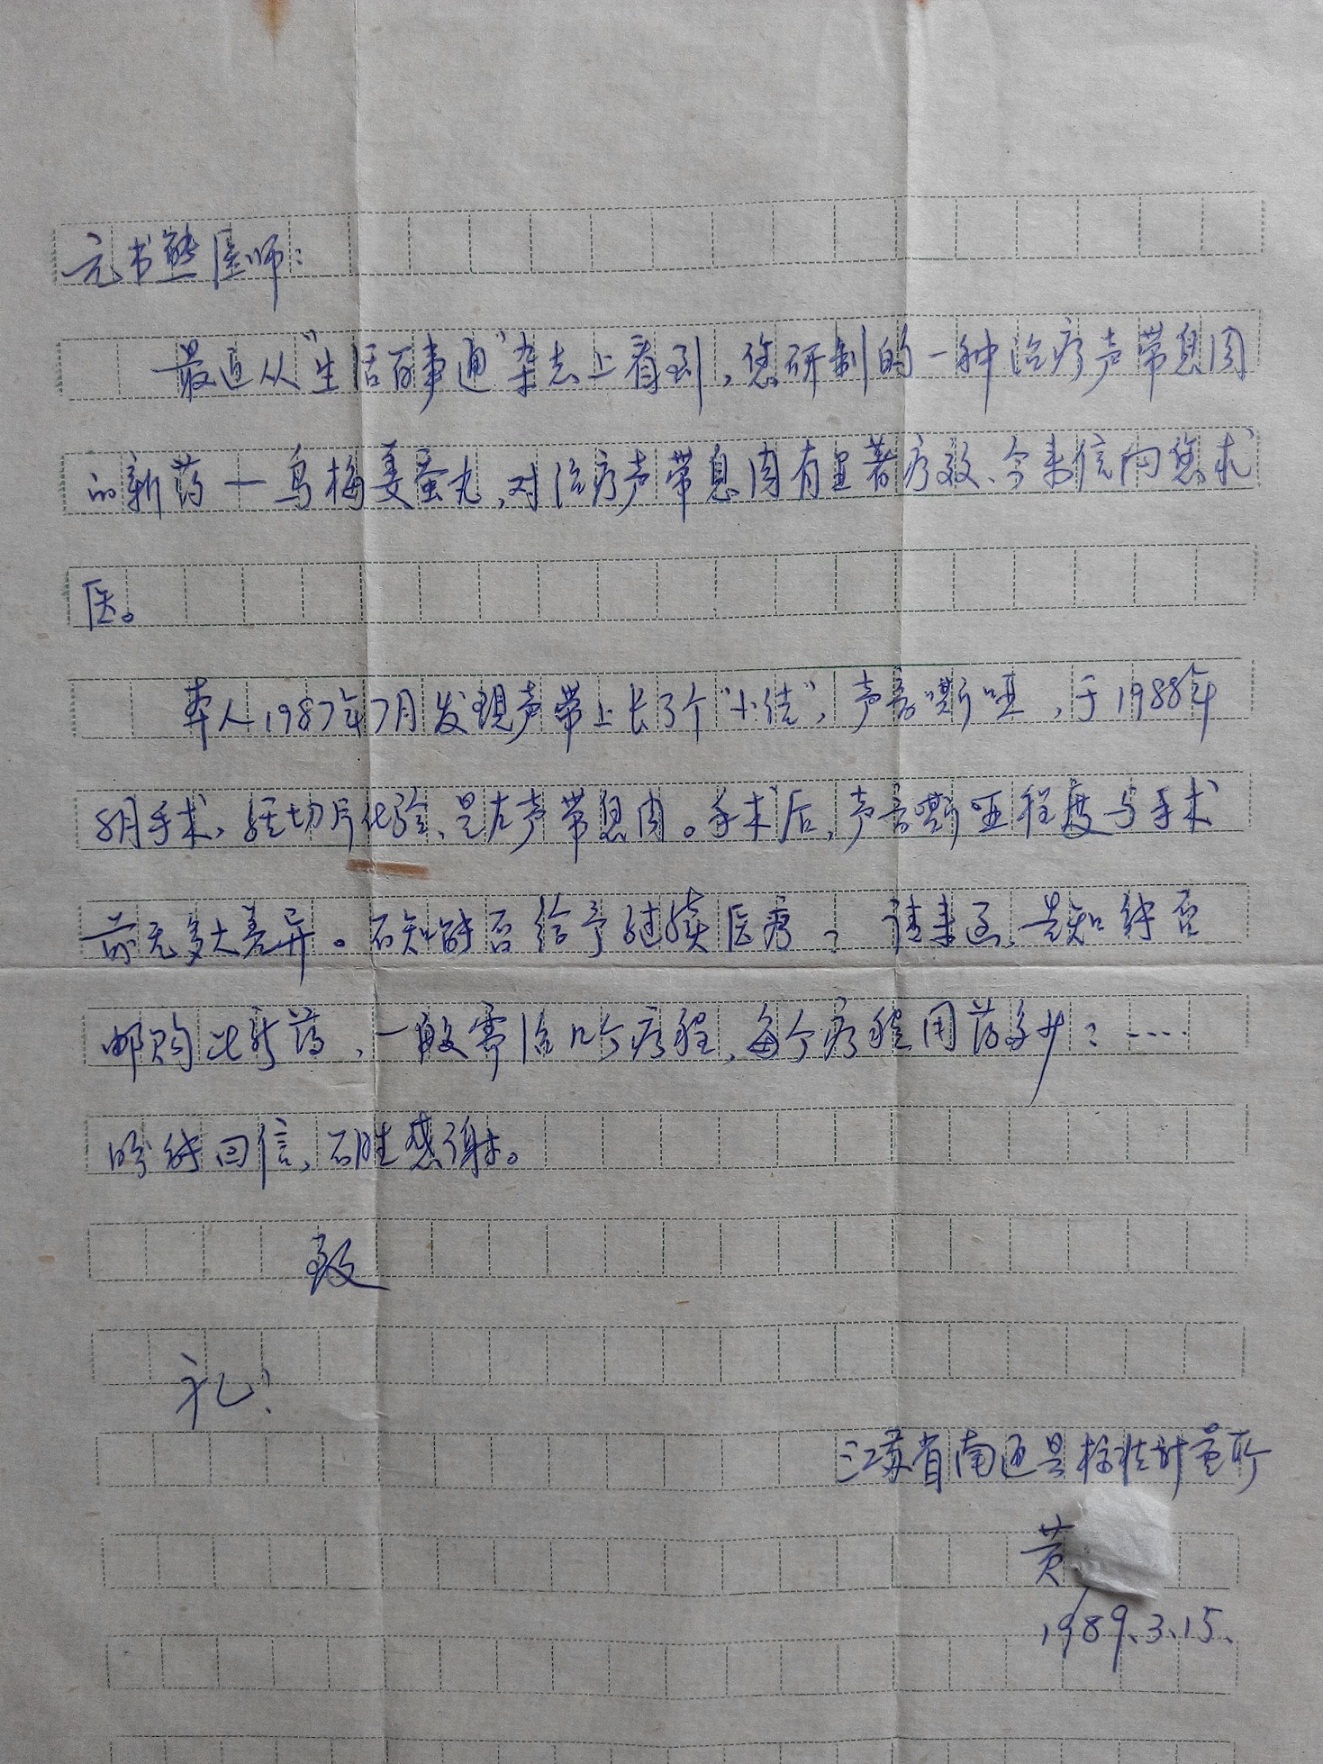 元书熊医师：
最近从“生活百事通”杂志上看到，您研制的一种治疗声带息肉
的新药—乌梅姜蚕丸，对治疗声带息肉有显著疗效、今来信向您求
医。
本人1987年7月发现声带上长了个“小结”，声音嘶哑，于1988年
8月手术，经切片化验、是左声带息肉。手术后，声音嘶哑程度与手术
前无多大差异。不知能否给予继续医疗？请来函、告知能否
邮购此新药，一般需治几个疗程，每个疗程用药多少？……
盼能回信，不胜感谢。
致
礼！
江苏省南通县标准计量所
黄
1989.3.15.